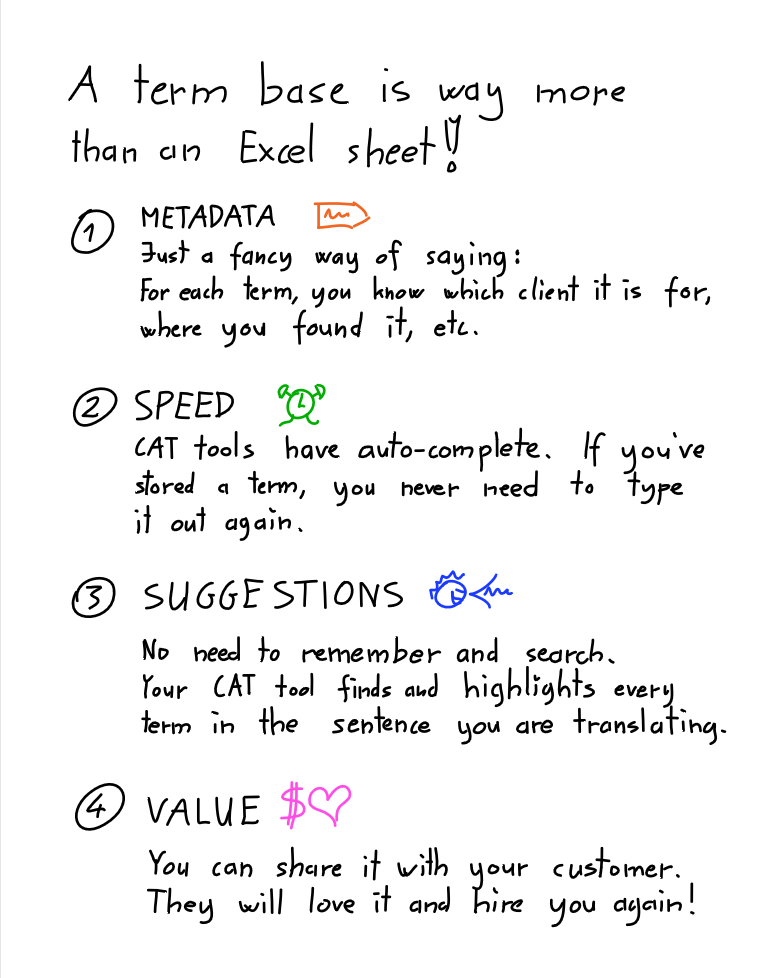 A term base is way more
than an Excel sheet!
1 METADATA
Just a fancy way of saying:
For each term, you know which client it is for,
where you found it, etc.
2 SPEED
CAT tools have auto-complete. If you've
stored a term, you never need to type
it out again.
3 SUGGESTIONS
No need to remember and search.
Your CAT tool finds and highlights every
term in the sentence you are translating.
4 VALUE $
You can share it with your customer.
They will love it and hire you again!